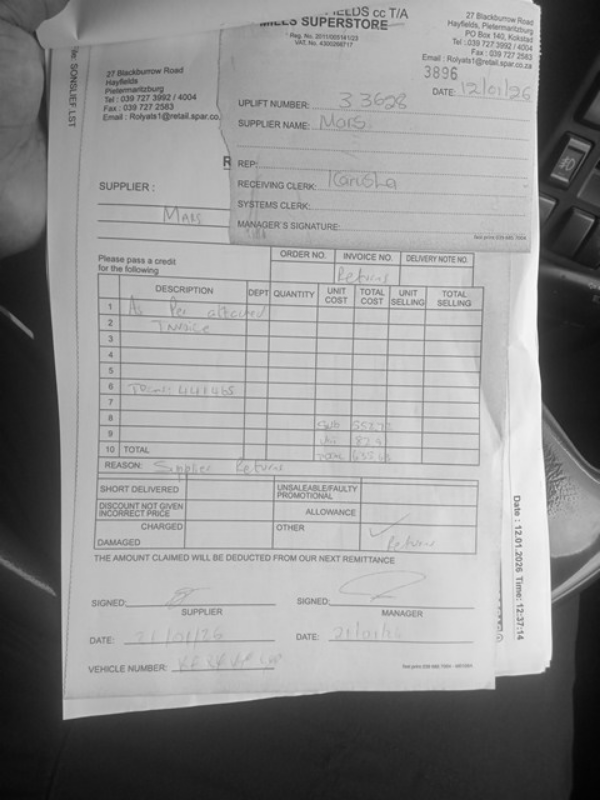 FIELDS cc T/A
MILLS SUPERSTORE
Reg. No. 2011/005141/23
VAT. No. 4300268717
27 Blackburrow Road
Hayfields, Pietermaritzburg
PO Box 140, Kokstad
Tel : 039 727 3992 / 4004
Fax : 039 727 2583
Email : Rolyats1@retail.spar.co.za
3896
DATE: 12/01/26
UPLIFT NUMBER: 33628
SUPPLIER NAME: Mars
REP:
RECEIVING CLERK: Karisha
SYSTEMS CLERK:
MANAGER'S SIGNATURE:
27 Blackburrow Road
Hayfields
Pietermaritzburg
Tel : 039 727 3992 / 4004
Fax : 039 727 2583
Email : Rolyats1@retail.spar.co.
R
SUPPLIER :
Mars
Please pass a credit
for the following
ORDER NO. INVOICE NO. DELIVERY NOTE NO.
Returns
DESCRIPTION DEPT QUANTITY UNIT COST TOTAL COST UNIT SELLING TOTAL SELLING
1 As Per attached
2 Invoice
3
4
5
6
7
8 Sub
9
10 TOTAL Total
REASON: Supplier Returns
SHORT DELIVERED UNSALEABLE/FAULTY PROMOTIONAL
DISCOUNT NOT GIVEN INCORRECT PRICE ALLOWANCE
CHARGED OTHER
DAMAGED Return
THE AMOUNT CLAIMED WILL BE DEDUCTED FROM OUR NEXT REMITTANCE
SIGNED: SIGNED:
SUPPLIER MANAGER
DATE: 21/01/26 DATE: 21/01/26
VEHICLE NUMBER:
SONSLIEF LST
Date : 12.01.2026 Time: 12:37:14